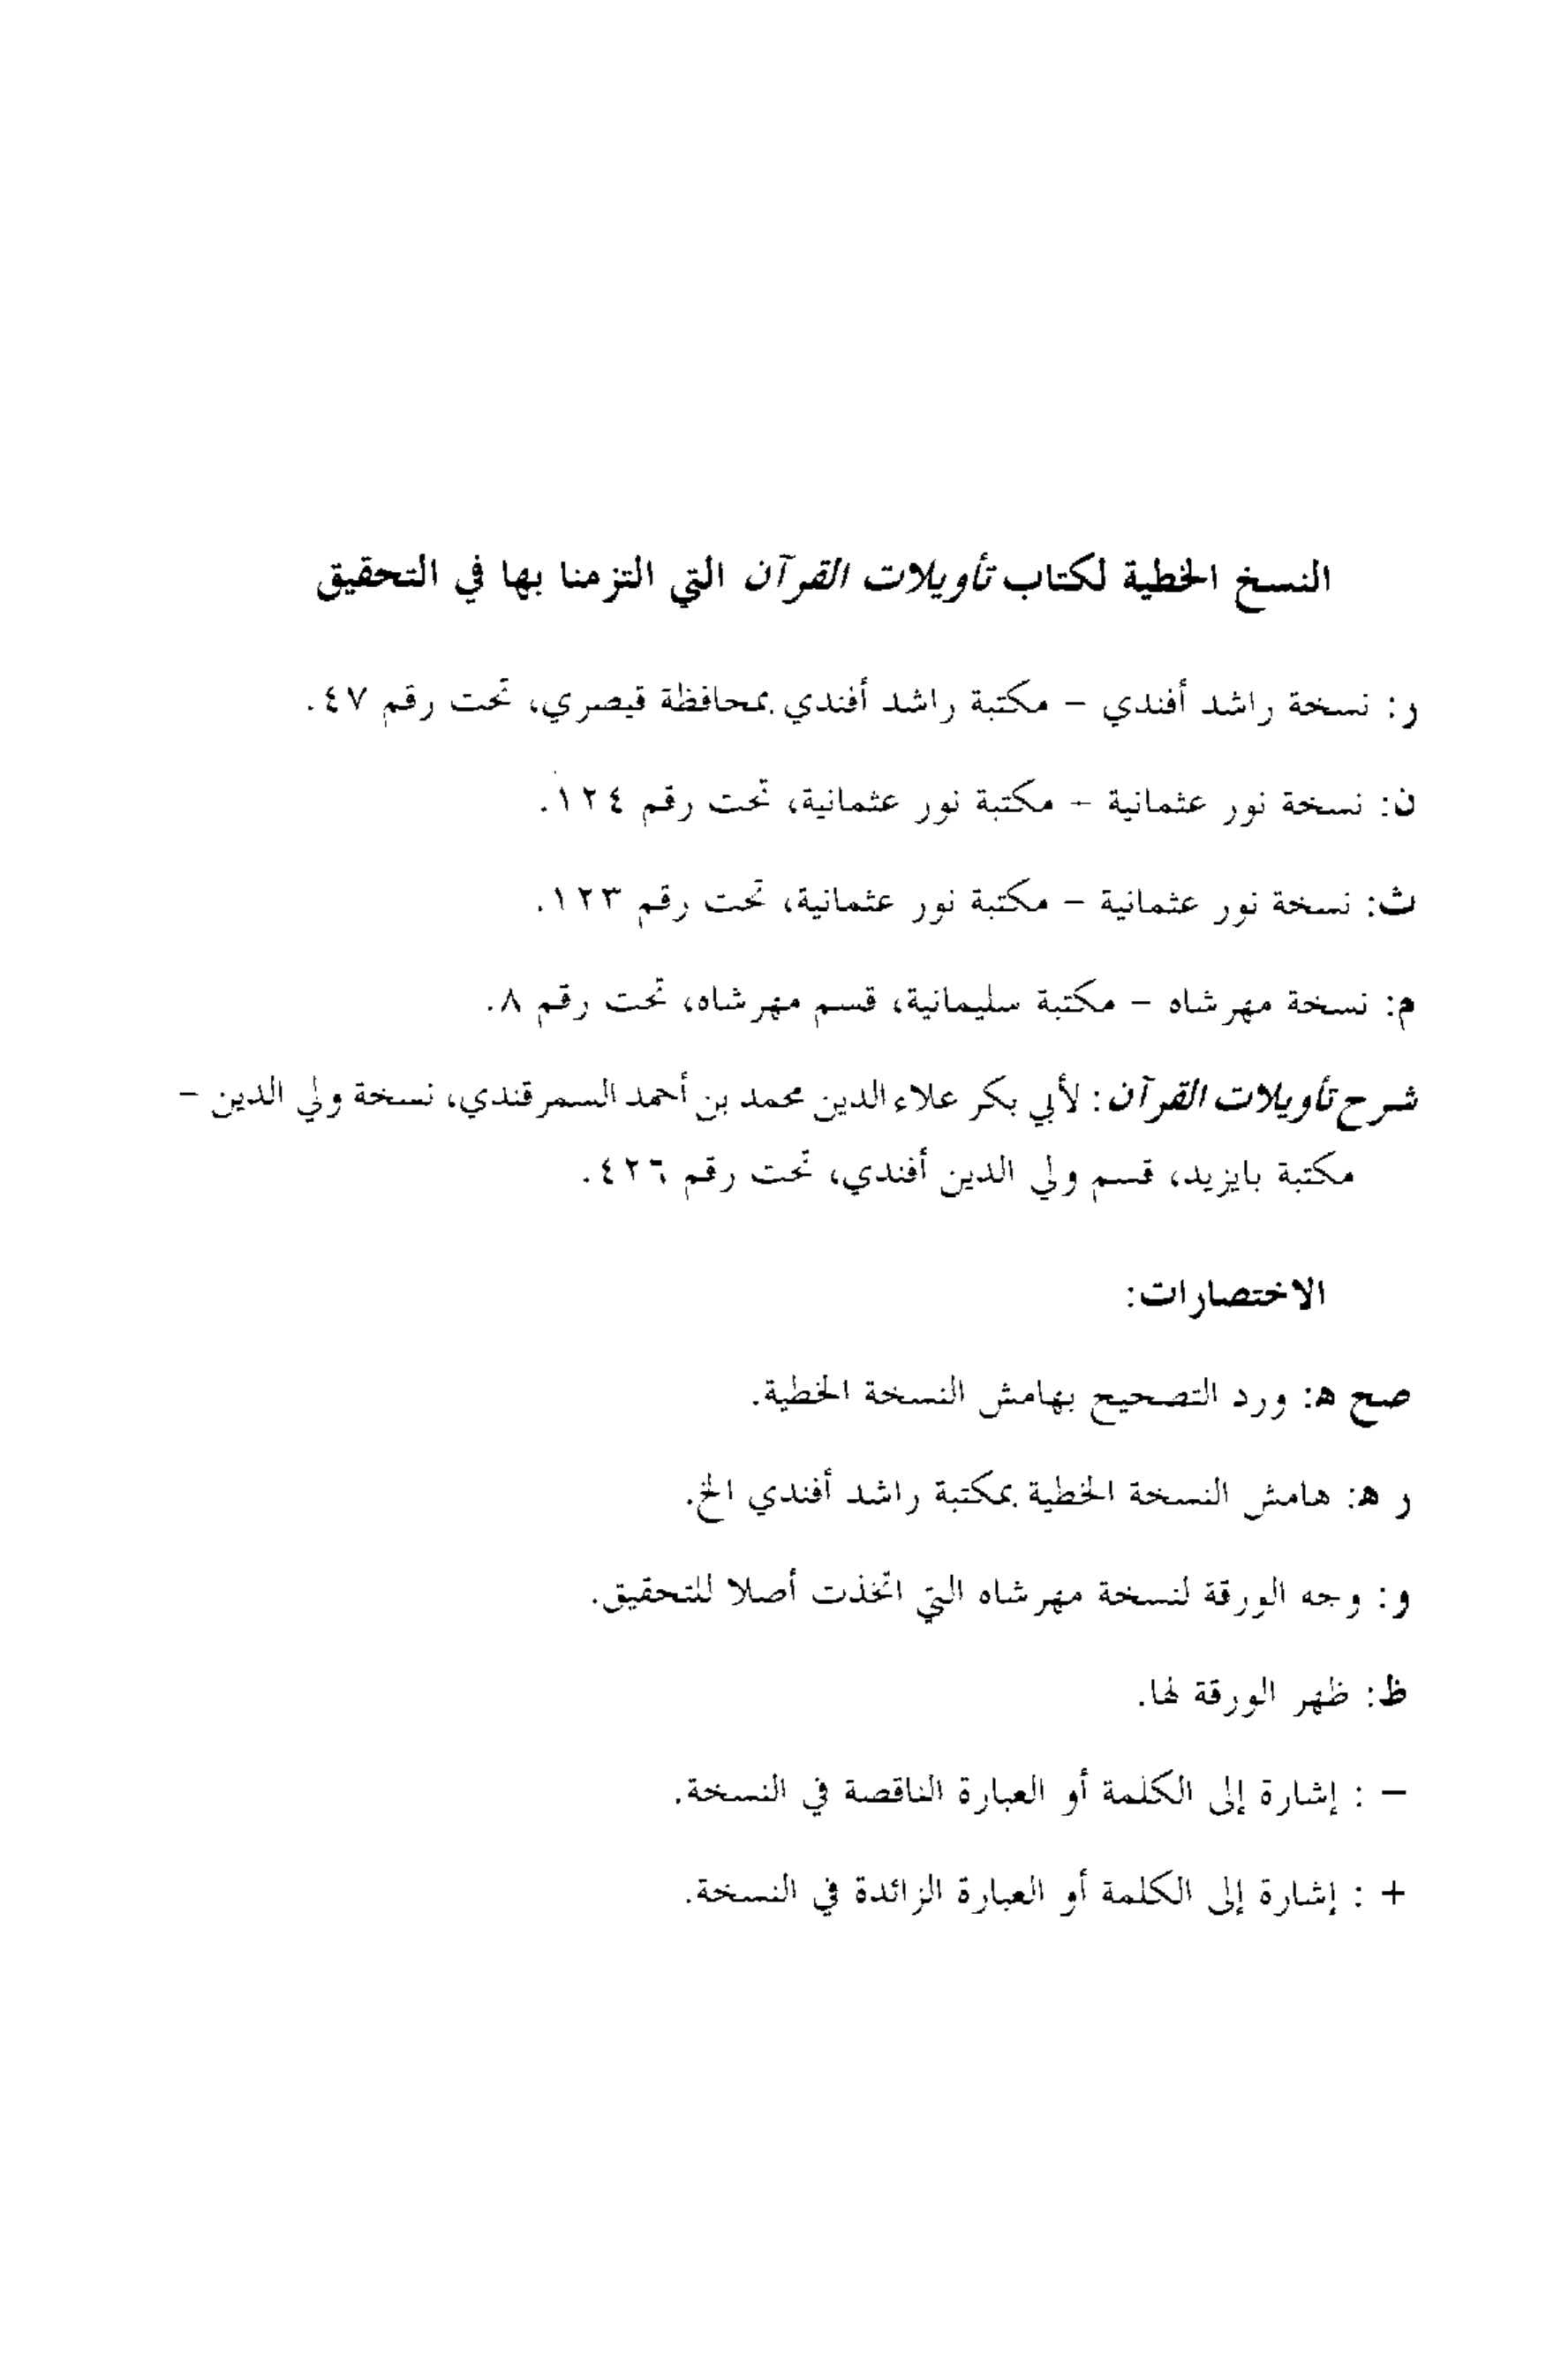 النسخ الخطية لكتاب تأويلات القرآن التي التزمنا بها في التحقيق
ر: نسخة راشد أفندي - مكتبة راشد أفندي بمحافظة قيصري، تحت رقم ٤٧.
ن: نسخة نور عثمانية - مكتبة نور عثمانية، تحت رقم ١٢٤.
ث: نسخة نور عثمانية - مكتبة نور عثمانية، تحت رقم ١٢٣.
م: نسخة مهرشاه - مكتبة سليمانية، قسم مهرشاه، تحت رقم ٨.
شرح تأويلات القرآن: لأبي بكر علاء الدين محمد بن أحمد السمرقندي، نسخة ولي الدين -
مكتبة بايزيد، قسم ولي الدين أفندي، تحت رقم ٤٢٦.
الاختصارات:
صح ه: ورد التصحيح بهامش النسخة الخطية.
ر ه: هامش النسخة الخطية بمكتبة راشد أفندي الخ.
و: وجه الورقة لنسخة مهرشاه التي اتخذت أصلا للتحقيق.
ظ: ظهر الورقة لها.
- : إشارة إلى الكلمة أو العبارة الناقصة في النسخة.
+ : إشارة إلى الكلمة أو العبارة الزائدة في النسخة.